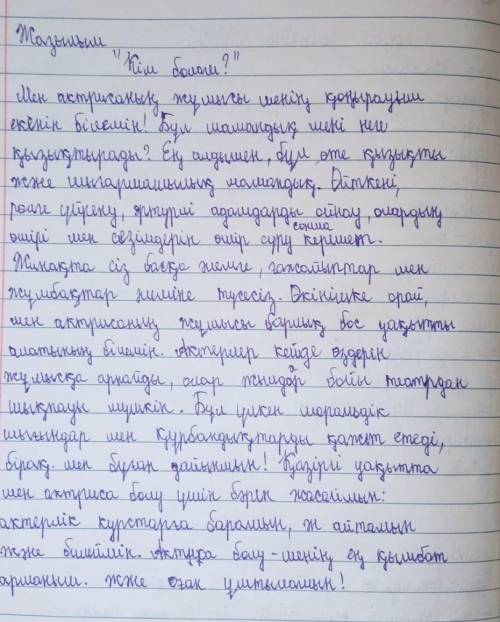 Жазылым
"Кім болам?"
Мен актрисаның жұмысы менің қоңырауым
екенін білемін! Бұл мамандық мені неге
қызықтырады? Ең алдымен, бұл өте қызықты
және шығармашылық мамандық. Өйткені,
рөлге үйрену, әртүрлі адамдарды ойнау, олардың
өмірі мен сезімдерін өмір сүру керемет.
сонша
Жинақта сіз басқа әлемге, ғажайыптар мен
жұмбақтар әлеміне түсесіз. Өкінішке орай,
мен актрисаның жұмысы барлық бос уақытты
алатының білемін. Актерлер кейде өздерін
жұмысқа арнайды, олар жылдар бойы театрдан
шықпауы мүмкін. Бұл үлкен моральдік
шығындар мен құрбандықтарды қажет етеді,
бірақ мен бұған дайынмын! Қазіргі уақытта
мен актриса болу үшін бәрін жасаймын:
актерлік курстарға барамын, ән айтамын
және билеймін. Актриса болу - менің ең қымбат
арманым. және оған ұмтыламын!